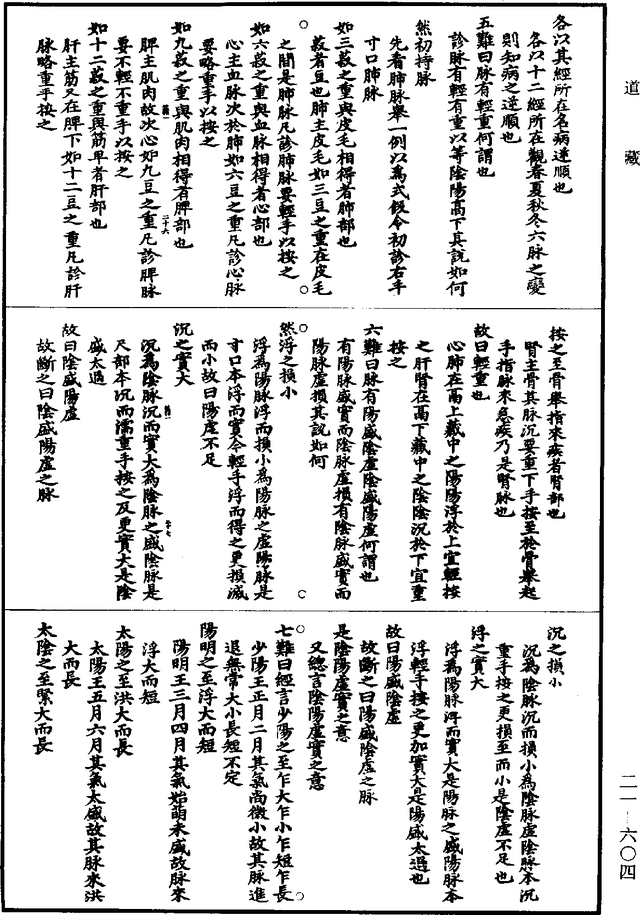 道藏
各以其經所在名病逆順也
各以十二經所在觀春夏秋冬六脉之變
則知病之逆順也
五難曰脉有輕重何謂也
診脉有輕有重以等陰陽高下其說如何
然初持脉
先看肺脉舉一例以爲式假令初診右手
寸口肺脉
如三菽之重與皮毛相得者肺部也
菽者豆也肺主皮毛如三豆之重在皮毛
之間是肺脉凡診肺脉要輕手以按之
如六菽之重與血脉相得者心部也
心主血脉次於肺如六豆之重凡診心脉
要略重手以按之
如九菽之重與肌肉相得者脾部也
脾主肌肉故次心如九豆之重凡診脾脉
要不輕不重手以按之
如十二菽之重與筋平者肝部也
肝主筋又在脾下如十二豆之重凡診肝
脉略重手按之
按之至骨舉指來疾者腎部也
腎主骨其脉沉要重下手按至於骨舉起
手指脉來急疾乃是腎脉也
故曰輕重也
心肺在鬲上藏中之陽陽浮於上宜輕按
之肝腎在鬲下藏中之陰陰沉於下宜重
按之
六難曰脉有陽盛陰虛陰盛陽虛何謂也
有陽脉盛實而陰脉虛損有陰脉盛實而
陽脉虛損其說如何
然浮之損小
浮爲陽脉浮而損小爲陽脉之虛陽脉是
寸口本浮而實今輕手浮而得之更損减
而小故曰陽虛不足
沉之實大
沉爲陰脉沉而實大爲陰脉之盛陰脉是
尺部本沉而濡重手按之反更實大是陰
盛太過
故曰陰盛陽虛
故斷之曰陰盛陽虛之脉
沉之損小
沉爲陰脉沉而損小爲陰脉虛陰脉本沉
重手按之更損至而小是陰虛不足也
浮之實大
浮爲陽脉浮而實大是陽脉之盛陽脉本
浮輕手按之更加實大是陽盛太過也
故曰陽盛陰虛
故斷之曰陽盛陰虛之脉
是陰陽虛實之意
又總言陰陽虛實之意
七難曰經言少陽之至乍大乍小乍短乍長
少陽王正月二月其氣尚微小故其脉進
退無常大小長短不定
陽明之至浮大而短
陽明王三月四月其氣始萌未盛故脉來
浮大而短
太陽之至洪大而長
太陽王五月六月其氣太盛故其脉來洪
大而長
太陰之至緊大而長
二一·六〇四